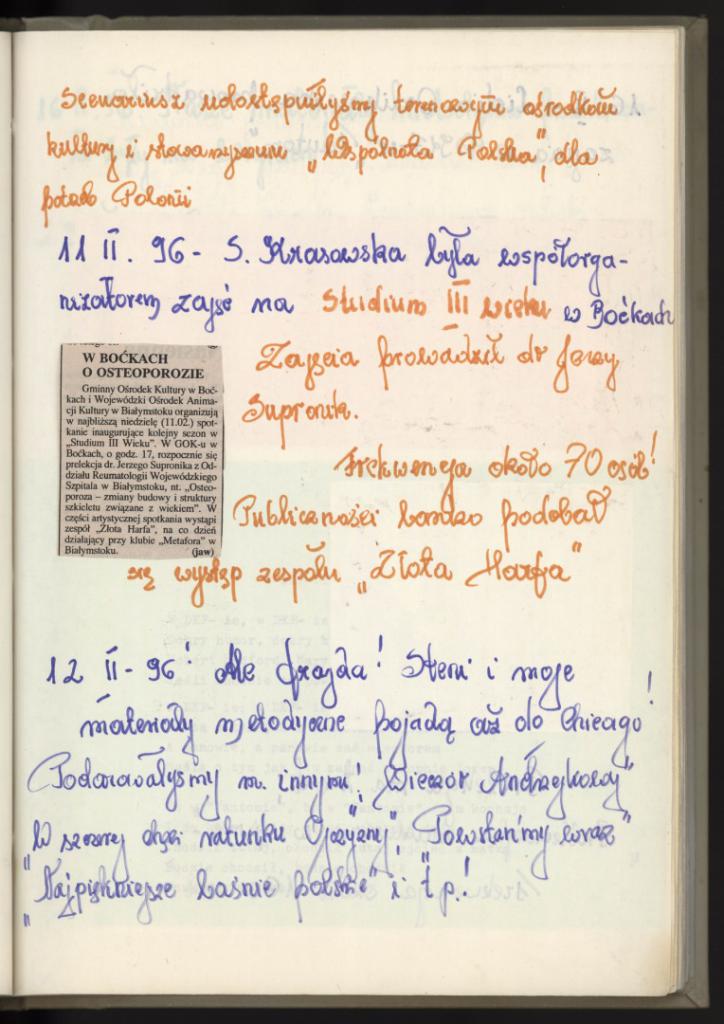 Scenariusz udostępniłyśmy terenowym ośrodkom
kultury i stowarzyszeniu „Wspólnota Polska", dla
potrzeb Polonii
11 II. 96 - S. Krasowska była współorga-
nizatorem zajęć na Studium III wieku w Boćkach
Zajęcia prowadził dr Jerzy
Supronik.
W BOĆKACH
O OSTEOPOROZIE
Gminny Ośrodek Kultury w Boć-
kach i Wojewódzki Ośrodek Anima-
cji Kultury w Białymstoku organizują
w najbliższą niedzielę (11.02.) spot-
kanie inaugurujące kolejny sezon w
„Studium III Wieku". W GOK-u w
Boćkach, o godz. 17, rozpocznie się
prelekcja dr. Jerzego Supronika z Od-
działu Reumatologii Wojewódzkiego
Szpitala w Białymstoku, nt. „Osteo-
poroza – zmiany budowy i struktury
szkieletu związane z wiekiem". W
części artystycznej spotkania wystąpi
zespół „Złota Harfa", na co dzień
działający przy klubie „Metafora" w
Białymstoku. (jaw)
Frekwencja około 70 osób!
Publiczności bardzo podobał
się występ zespołu „Złota Harfa"
12 II - 96! Ale frajda! Steni i moje
materiały metodyczne pojadą aż do Chicago!
Podarowałyśmy m. innymi: „Wieczór Andrzejkowy"
„W szczerej chęci ratunku Ojczyzny", „Powstańmy wraz"
„Najpiękniejsze baśnie polskie" i t.p.!